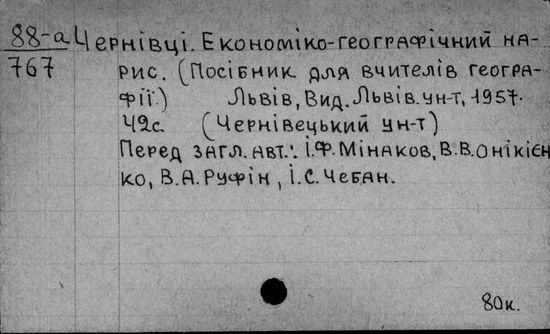 88-а Чернівці. Економіко-географічний на-
767 рис. (Посібник для вчителів геогра-
фії.) Львів, Вид. Львів. ун-т, 1957.
42с. (Чернівецький ун-т)
Перед загл. авт.: І.Ф. Мінаков, В.В. Онікієн-
ко, В.А. Руфін, І.С. Чебан.
80к.